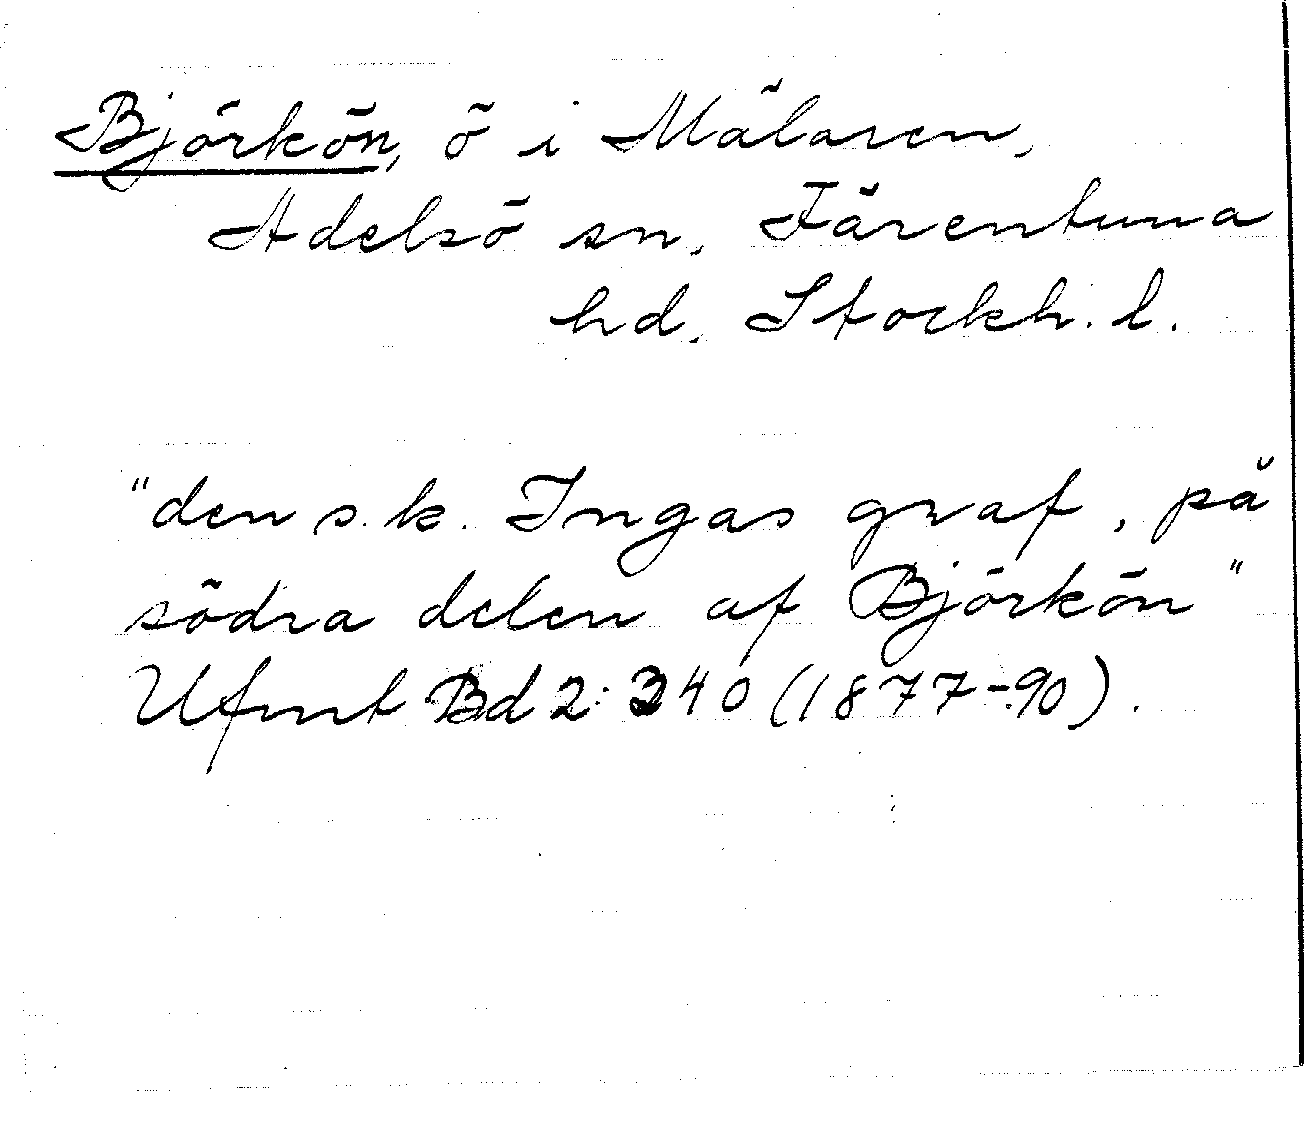 Björkön, ö i Mälaren,
Adelsö sn, Färentuna
hd, Stockh. l.
"den s.k. Ingas graf, på
södra delen af Björkön"
Ufmt Bd 2: 340 (1877-90).